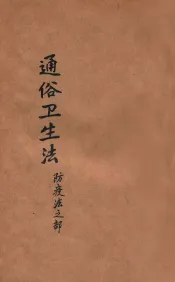 通俗卫生法
防疫法之部